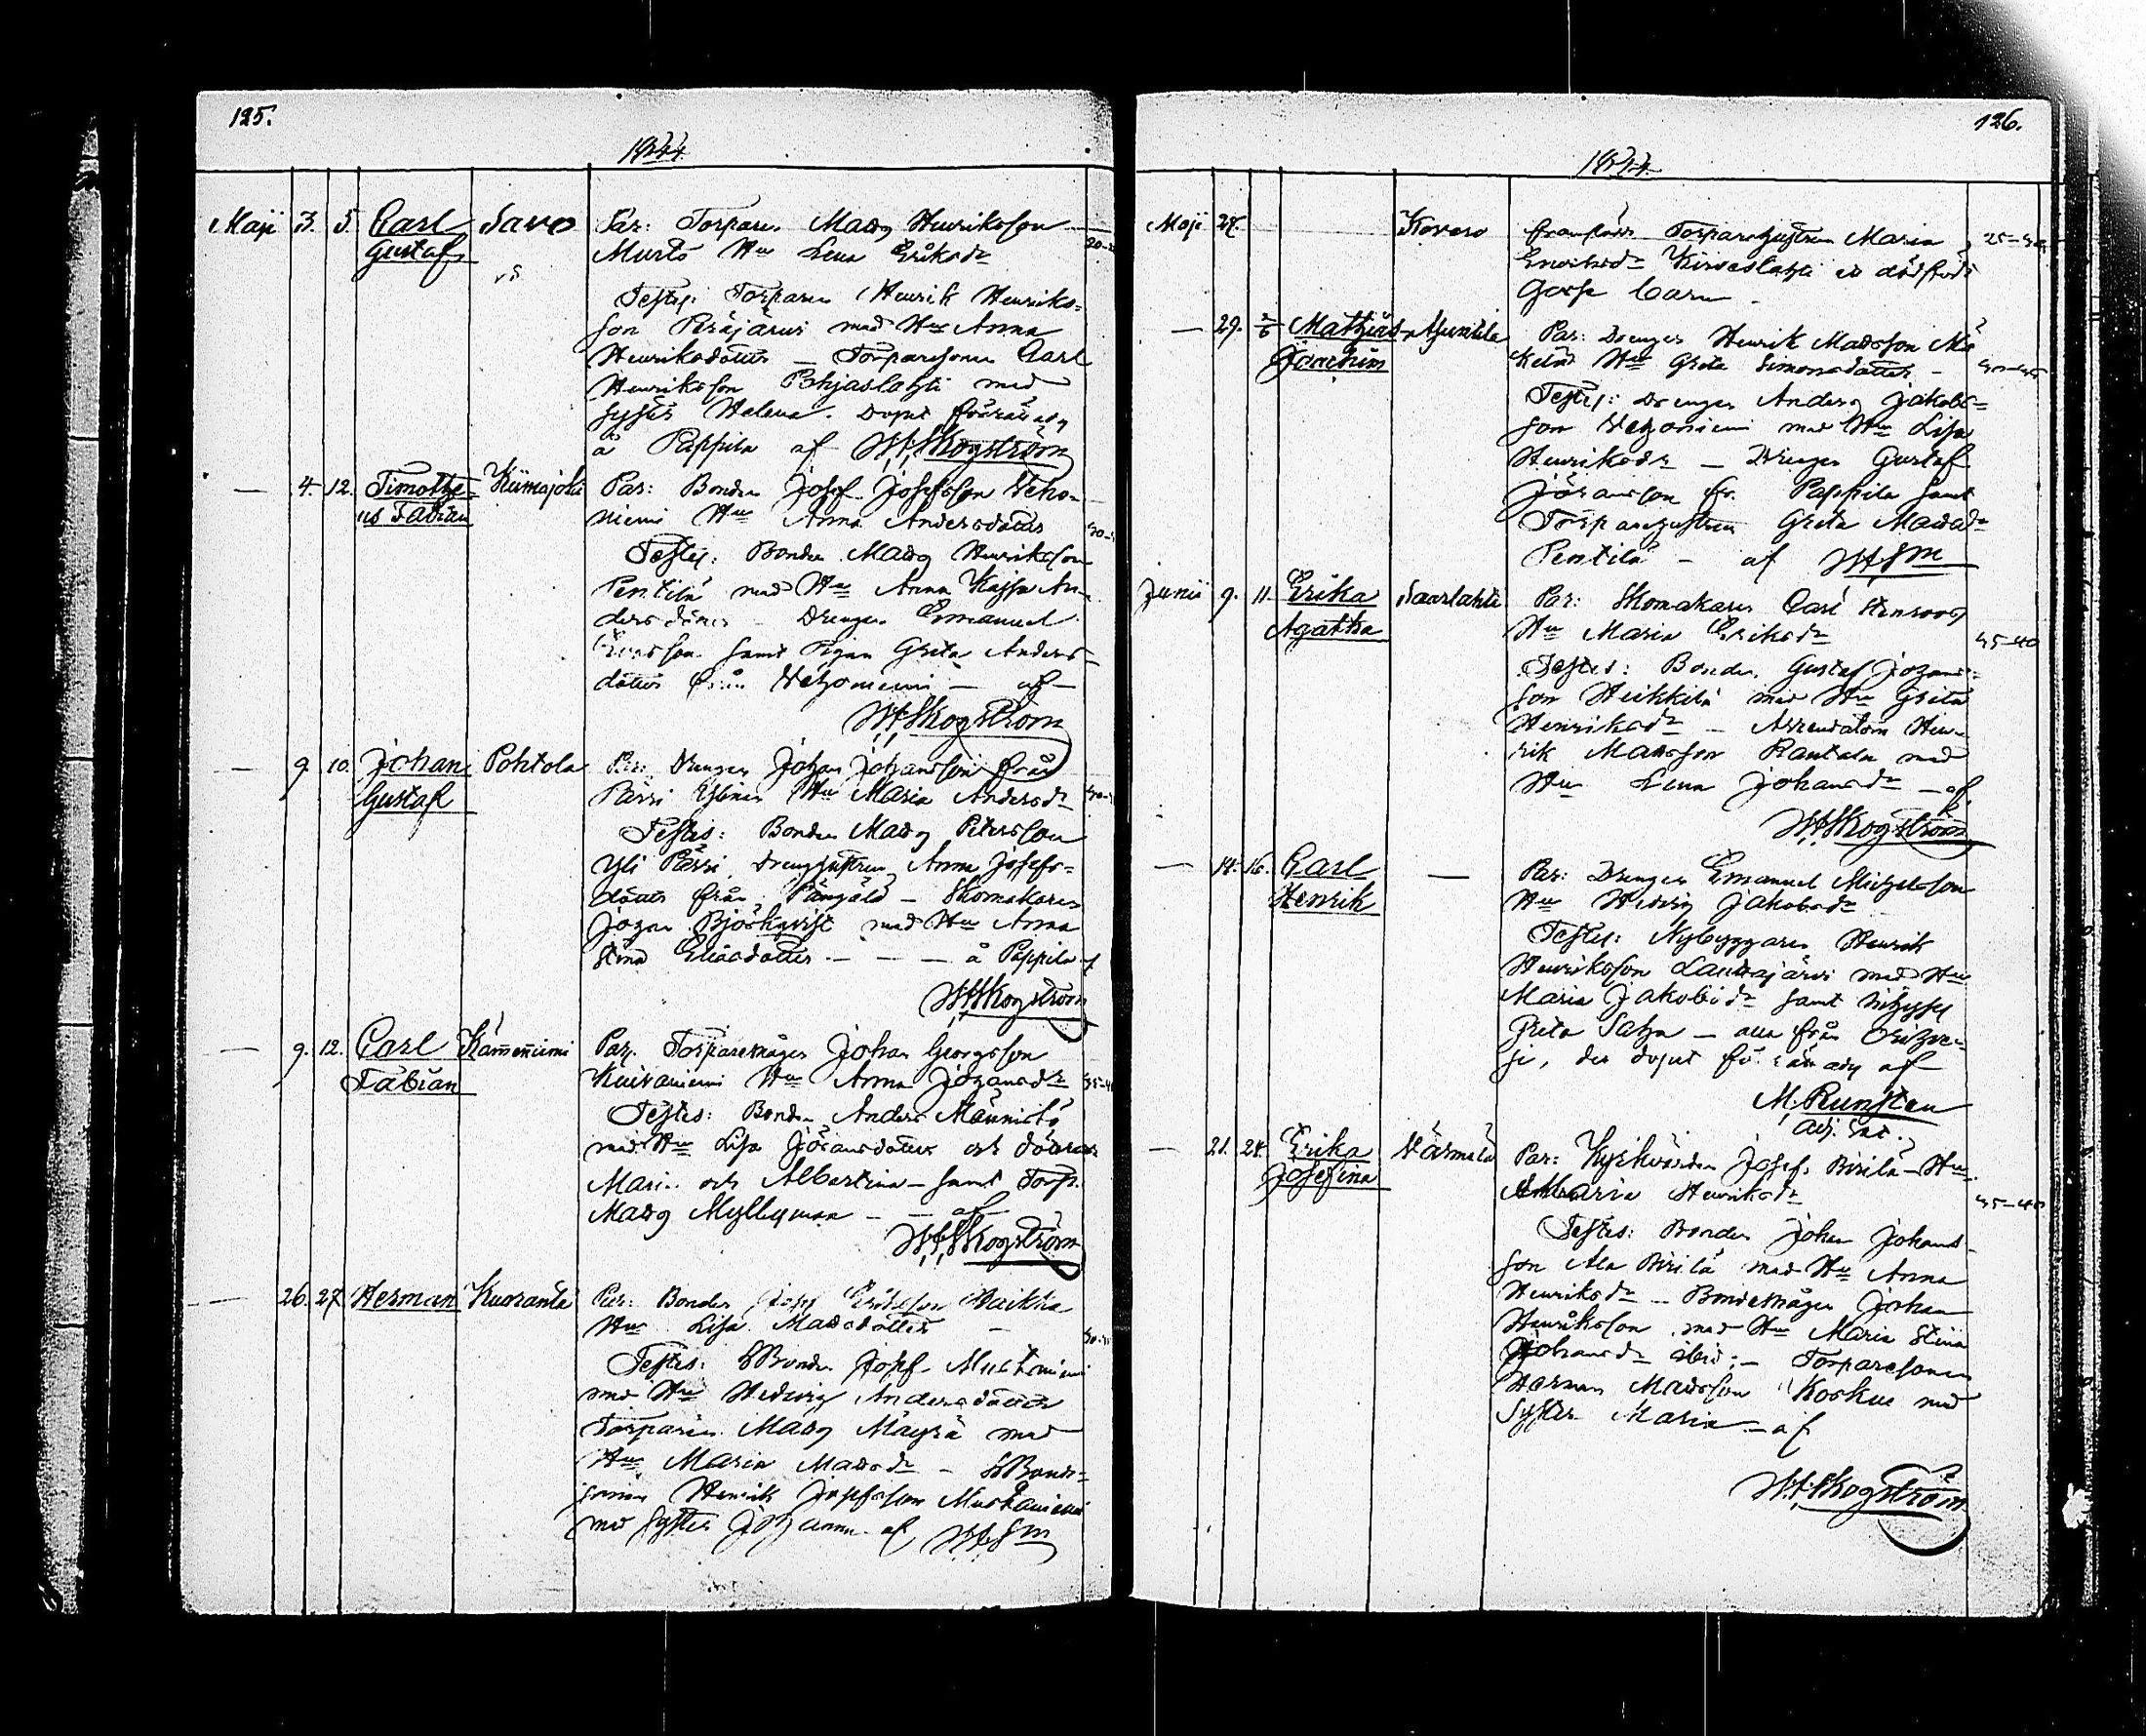 125.
1844
Maji 3. 5. Carl Savo Par: Torparen Matts Henriksson
Gustaf Murto Hu Lena Eriksdr
Testes: Torparen Henrik Henriks-
son Peräjärvi med Hu Anna
Henriksdotter — Torparesonen Carl
Henriksson Pohjaslahti med
syster Helena. Döpt
å Pappila af Skogström
— 4. 12. Timothe- Kiimajoki Par: Bonden Josef Josefsson Veho-
us Fabian niemi Hu Anna Andersdotter
Testes: Bonden Matts Henriksson
Pentilä med Hu Anna Kajsa An-
dersdotter — Drengen Emanuel
samt Pigan Greta Anders-
dotter från Vehoniemi — af —
Skogström
— 9. 10. Johan Pohtola Par: Drengen Johan Johansson från
Gustaf Pärri Hu Maria Andersdr
Testes: Bonden Matts Petersson
Yli Pärri, Drenghustrun Anna Josefs-
dotter från — Skomakaren
Johan Björkqvist med Hu Anna
Stina Eliasdotter — — — å Pappila af
Skogström
— 9. 12. Carl Kämmenniemi Par: Torparemågen Johan Georgsson
Fabian Kuivaniemi Hu Anna Johansdr
Testes: Bonden Anders Männistö
med Hu Lisa Göransdotter och döttrar
Maria och Albertina — samt Torp.
Matts Myllymaa — — af —
Skogström
— 26. 27. Herman Kuoranta Par: Bonden Josef Eriksson
Hu Lisa Mattsdotter —
Testes: Bonden Josef Mustaniemi
med Hu Hedvig Andersdotter
Torparen Matts Mäyrä med
Hu Maria Mattsdr — Bonde-
sonen Henrik Josefsson Mustaniemi
med syster Johanna af
126.
1844
Maji 27. Kovero framfödde Torparehustrun Maria 25–30
dödfödt
Gosse barn —
— 29. 2/6 Mathias Juntila Par: Drengen Henrik Mattsson Mä
Joachim kelä Hu Greta Simonsdotter —
Testes: Drengen Anders Jakobs-
son Vehoniemi med Hu Lisa
Henriksdr — Drengen Gustaf
Göransson fr. Pappila samt
Torparehustrun Greta Mattsdr
Pentilä — af
Junii 9. 11. Erika Saarlahti Par: Skomakaren Carl Stenroos
Agatha Hu Maria Eriksdr 35–40
Testes: Bonden Gustaf Johans-
son Heikkilä med Hu Greta
Henriksdr — Arrendatorn Hen-
rik Mattsson Rantala med
Hu Lena Johansdr — af
Skogström
— 14. 16. Carl — Par: Drengen Emanuel Michelsson
Henrik Hu Hedvig Jakobsdr
Testes: Nybyggaren Henrik
Henriksson Lautajärvi med Hu
Maria Jakobsdr samt
Greta — alla från Orihve-
si, der döpt af
M. Runsten
adj. Sac.
— 21. 24. Erika Värmälä Par: Kyrkvärden Josef Pirilä — Hu
Josefina Maria Henriksdr 35–40
Testes: Bonden Johan Johans-
son Ala Pirilä med Hu Anna
Henriksdr — Bondemågen Johan
Henriksson med Hu Maria Stina
Johansdr ibid: — Torparesonen
Herman Mattsson Koskue med
Syster Maria — af
Skogström